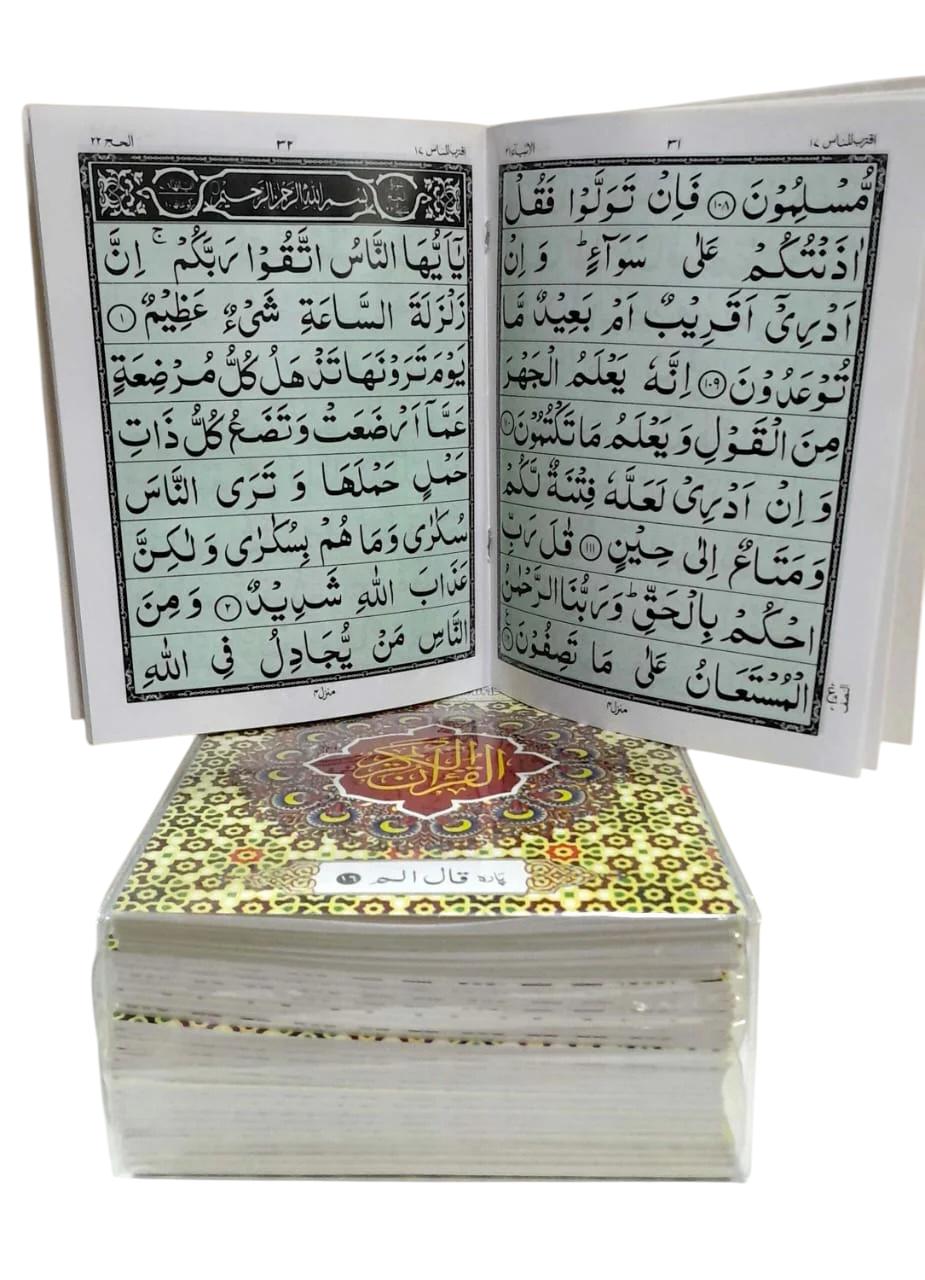 اقترب للناس ١٧
٣١
الانبياء ٢١
مُّسْلِمُوْنَ ﴿١٠٨﴾ فَاِنْ تَوَلَّوْا فَقُلْ
اٰذَنْتُكُمْ عَلٰى سَوَآءٍ ؕ وَ اِنْ
اَدْرِيْۤ اَقَرِيْبٌ اَمْ بَعِيْدٌ مَّا
تُوْعَدُوْنَ ﴿١٠٩﴾ اِنَّهٗ يَعْلَمُ الْجَهْرَ
مِنَ الْقَوْلِ وَ يَعْلَمُ مَا تَكْتُمُوْنَ ﴿١١٠﴾
وَ اِنْ اَدْرِيْ لَعَلَّهٗ فِتْنَةٌ لَّكُمْ
وَ مَتَاعٌ اِلٰى حِيْنٍ ﴿١١١﴾ قٰلَ رَبِّ
احْكُمْ بِالْحَقِّ ؕ وَ رَبُّنَا الرَّحْمٰنُ
الْمُسْتَعَانُ عَلٰى مَا تَصِفُوْنَ ﴿١١٢﴾
النصف
منزل ٤
اقترب للناس ١٧
٣٢
الحج ٢٢
بِسْمِ اللّٰهِ الرَّحْمٰنِ الرَّحِيْمِ
يٰۤاَيُّهَا النَّاسُ اتَّقُوْا رَبَّكُمْ ۚ اِنَّ
زَلْزَلَةَ السَّاعَةِ شَيْءٌ عَظِيْمٌ ﴿١﴾
يَوْمَ تَرَوْنَهَا تَذْهَلُ كُلُّ مُرْضِعَةٍ
عَمَّاۤ اَرْضَعَتْ وَ تَضَعُ كُلُّ ذَاتِ
حَمْلٍ حَمْلَهَا وَ تَرَى النَّاسَ
سُكٰرٰى وَ مَا هُمْ بِسُكٰرٰى وَ لٰكِنَّ
عَذَابَ اللّٰهِ شَدِيْدٌ ﴿٢﴾ وَ مِنَ
النَّاسِ مَنْ يُّجَادِلُ فِي اللّٰهِ
منزل ٤
القرآن الكريم
پارہ قال الم ١٦